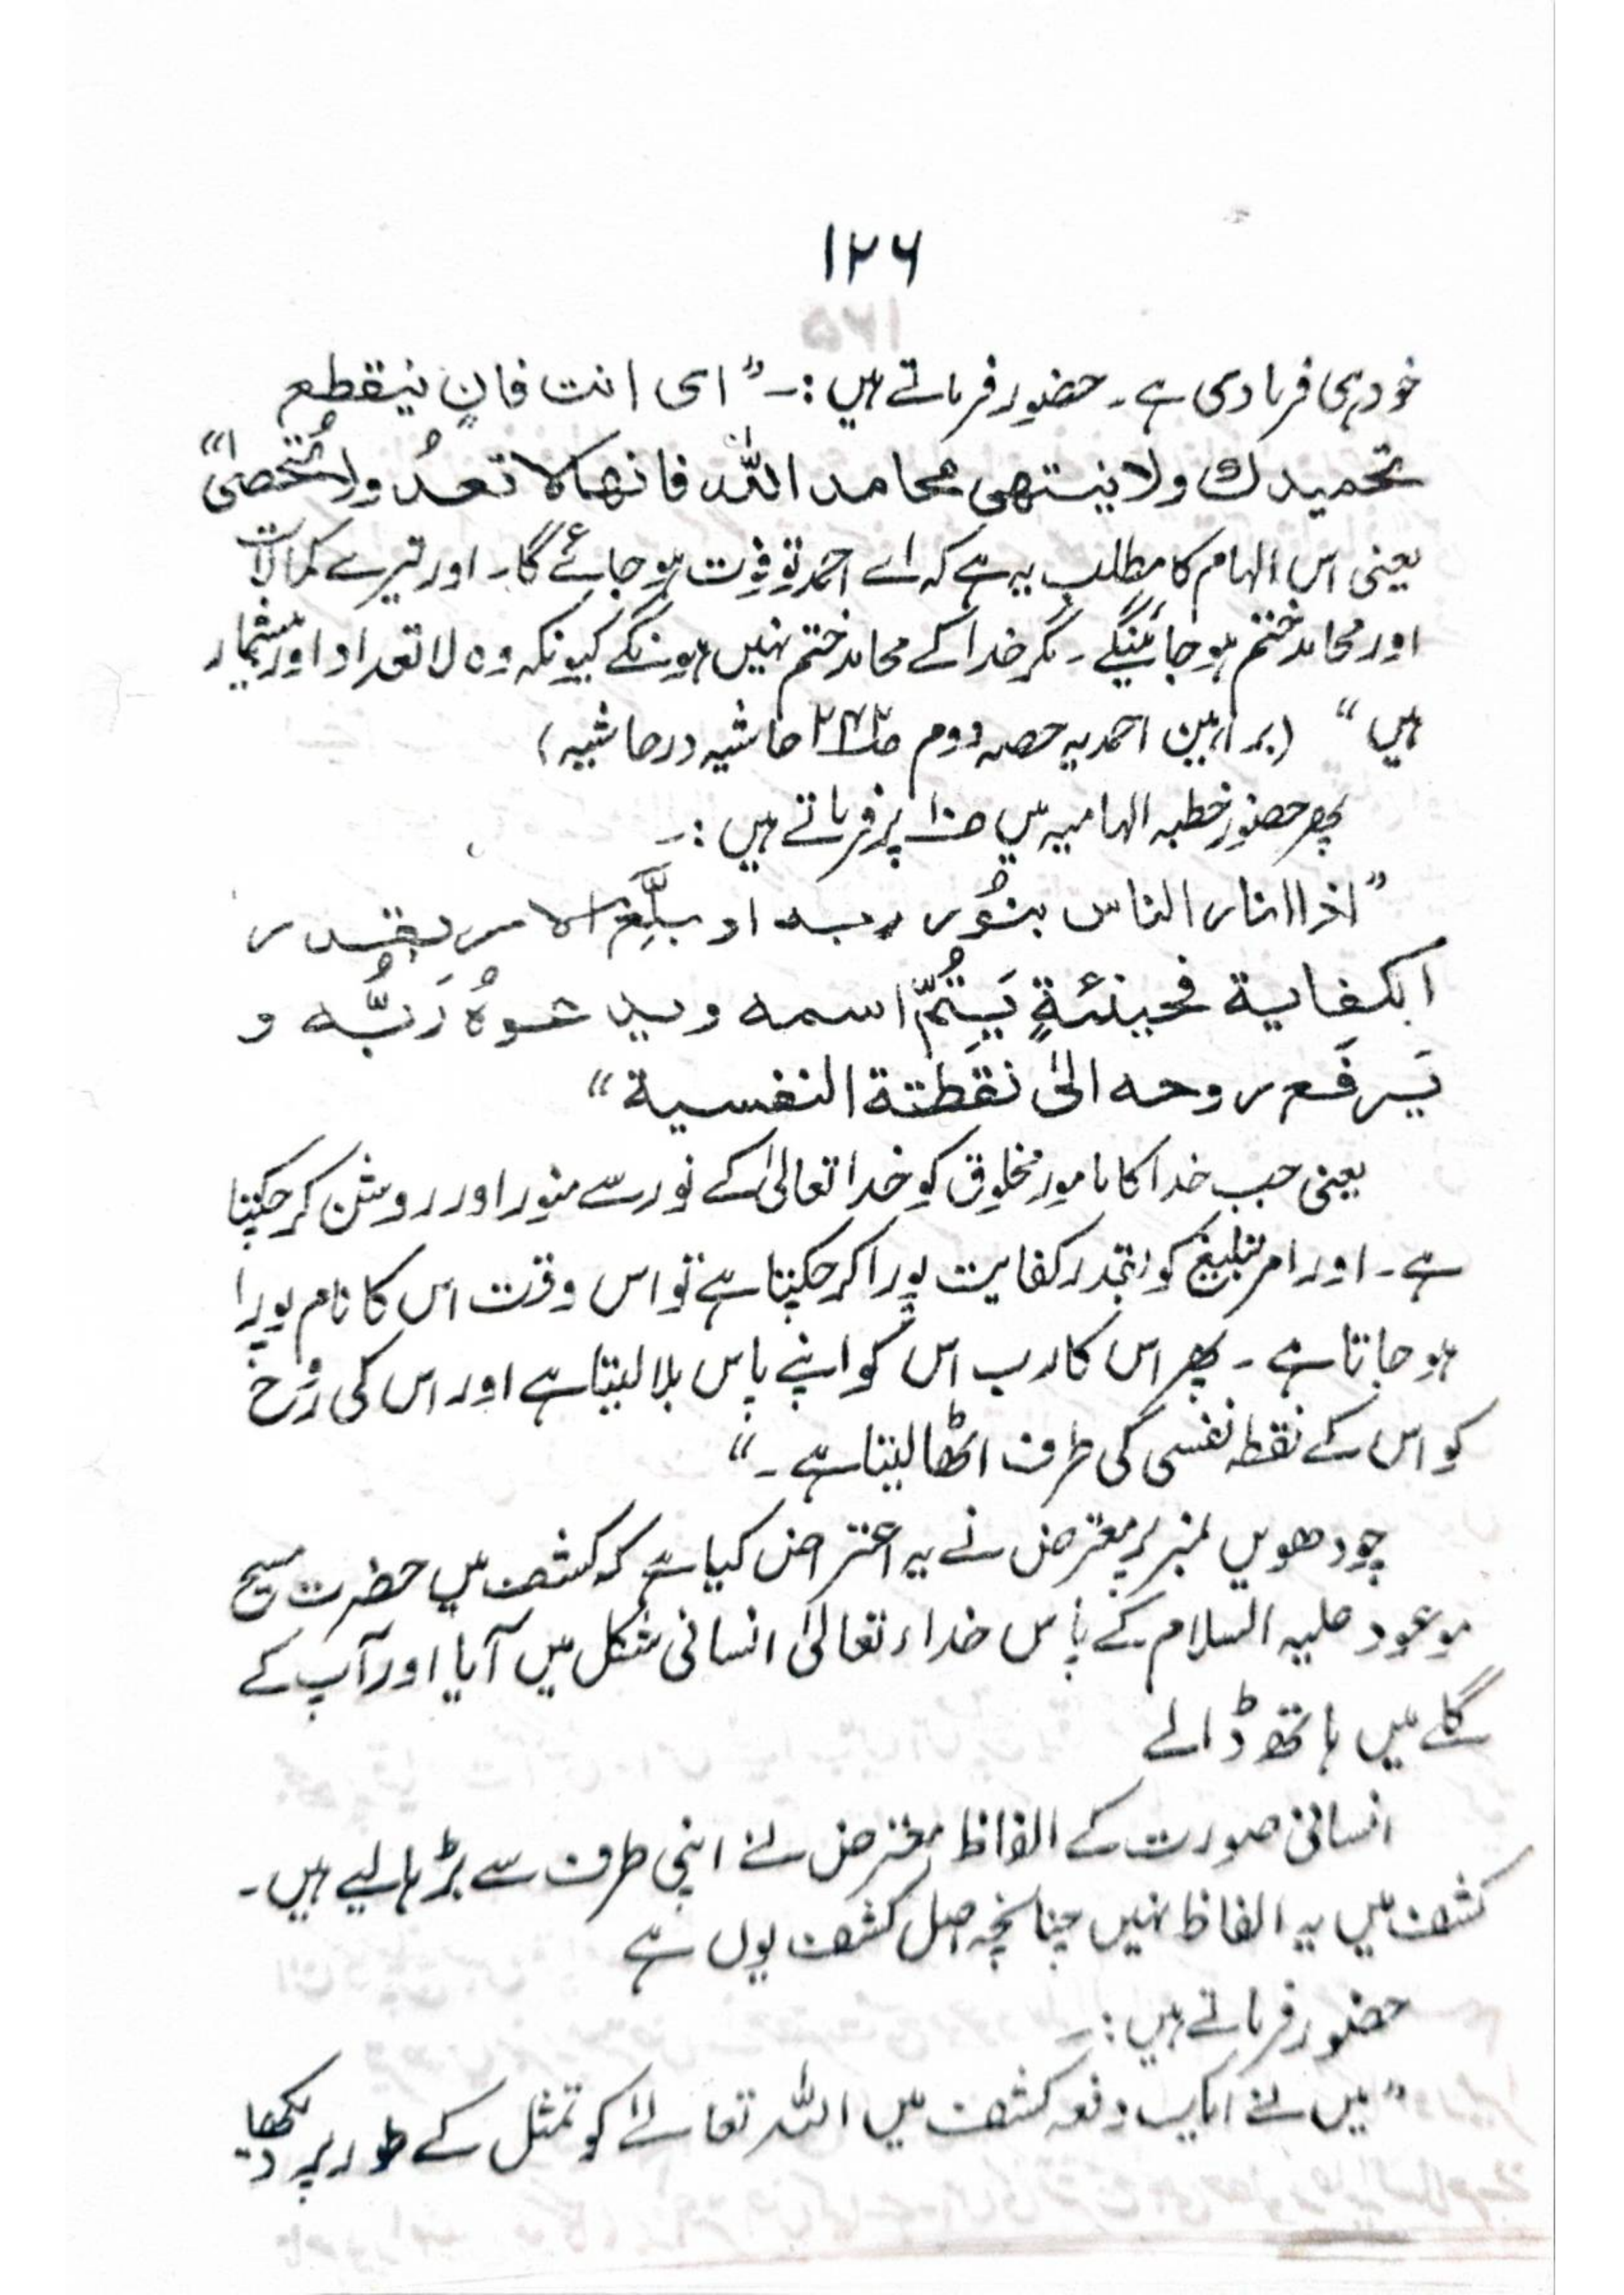 ۱۲۶
خود ہی فرما دی ہے۔ حضور فرماتے ہیں :۔ " ای انت فانٍ فینقطع
تحمیدك ولا ینتھی محامد اللہ فانھا لا تعدُ ولا تُحصیٰ"
یعنی اس الہام کا مطلب یہ ہے کہ اے احمد تو فوت ہو جائے گا۔ اور تیرے کمالات
اور محامد ختم ہو جائینگے۔ مگر خدا کے محامد ختم نہیں ہونگے کیونکہ وہ لا تعداد اور بیشمار
ہیں" (براہین احمدیہ حصہ دوم ص۲۴۲ حاشیہ در حاشیہ)
پھر حضور خطبہ الہامیہ میں ص۱۰ پر فرماتے ہیں :۔
"اذا انار الناس بنُور ربه او بلَّغ الامر بقدر
الکفایة فحینئةٍ یَتِمُّ اسمه ویدعوهُ رَبُّه و
یَرفَع روحه الیٰ نقطَتة النفسیة"
یعنی جب خدا کا مامور مخلوق کو خدا تعالیٰ کے نور سے منور اور روشن کر چکتا
ہے۔ اور امر تبلیغ کو بقدر کفایت پورا کر چکتا ہے تو اس وقت اس کا نام پورا
ہو جاتا ہے۔ پھر اس کا رب اس کو اپنے پاس بلا لیتا ہے اور اس کی رُوح
کو اس کے نقطہ نفسی کی طرف اٹھا لیتا ہے۔"
چودھویں نمبر پر معترض نے یہ اعتراض کیا ہے کہ کشف میں حضرت مسیح
موعود علیہ السلام کے پاس خداء تعالیٰ انسانی شکل میں آیا اور آپ کے
گلے میں ہاتھ ڈالے
انسانی صورت کے الفاظ معترض نے اپنی طرف سے بڑھا لیے ہیں۔
کشف میں یہ الفاظ نہیں چنانچہ اصل کشف یوں ہے
حضور فرماتے ہیں :۔
"میں نے ایک دفعہ کشف میں اللہ تعالےٰ کو تمثل کے طور پر دیکھا